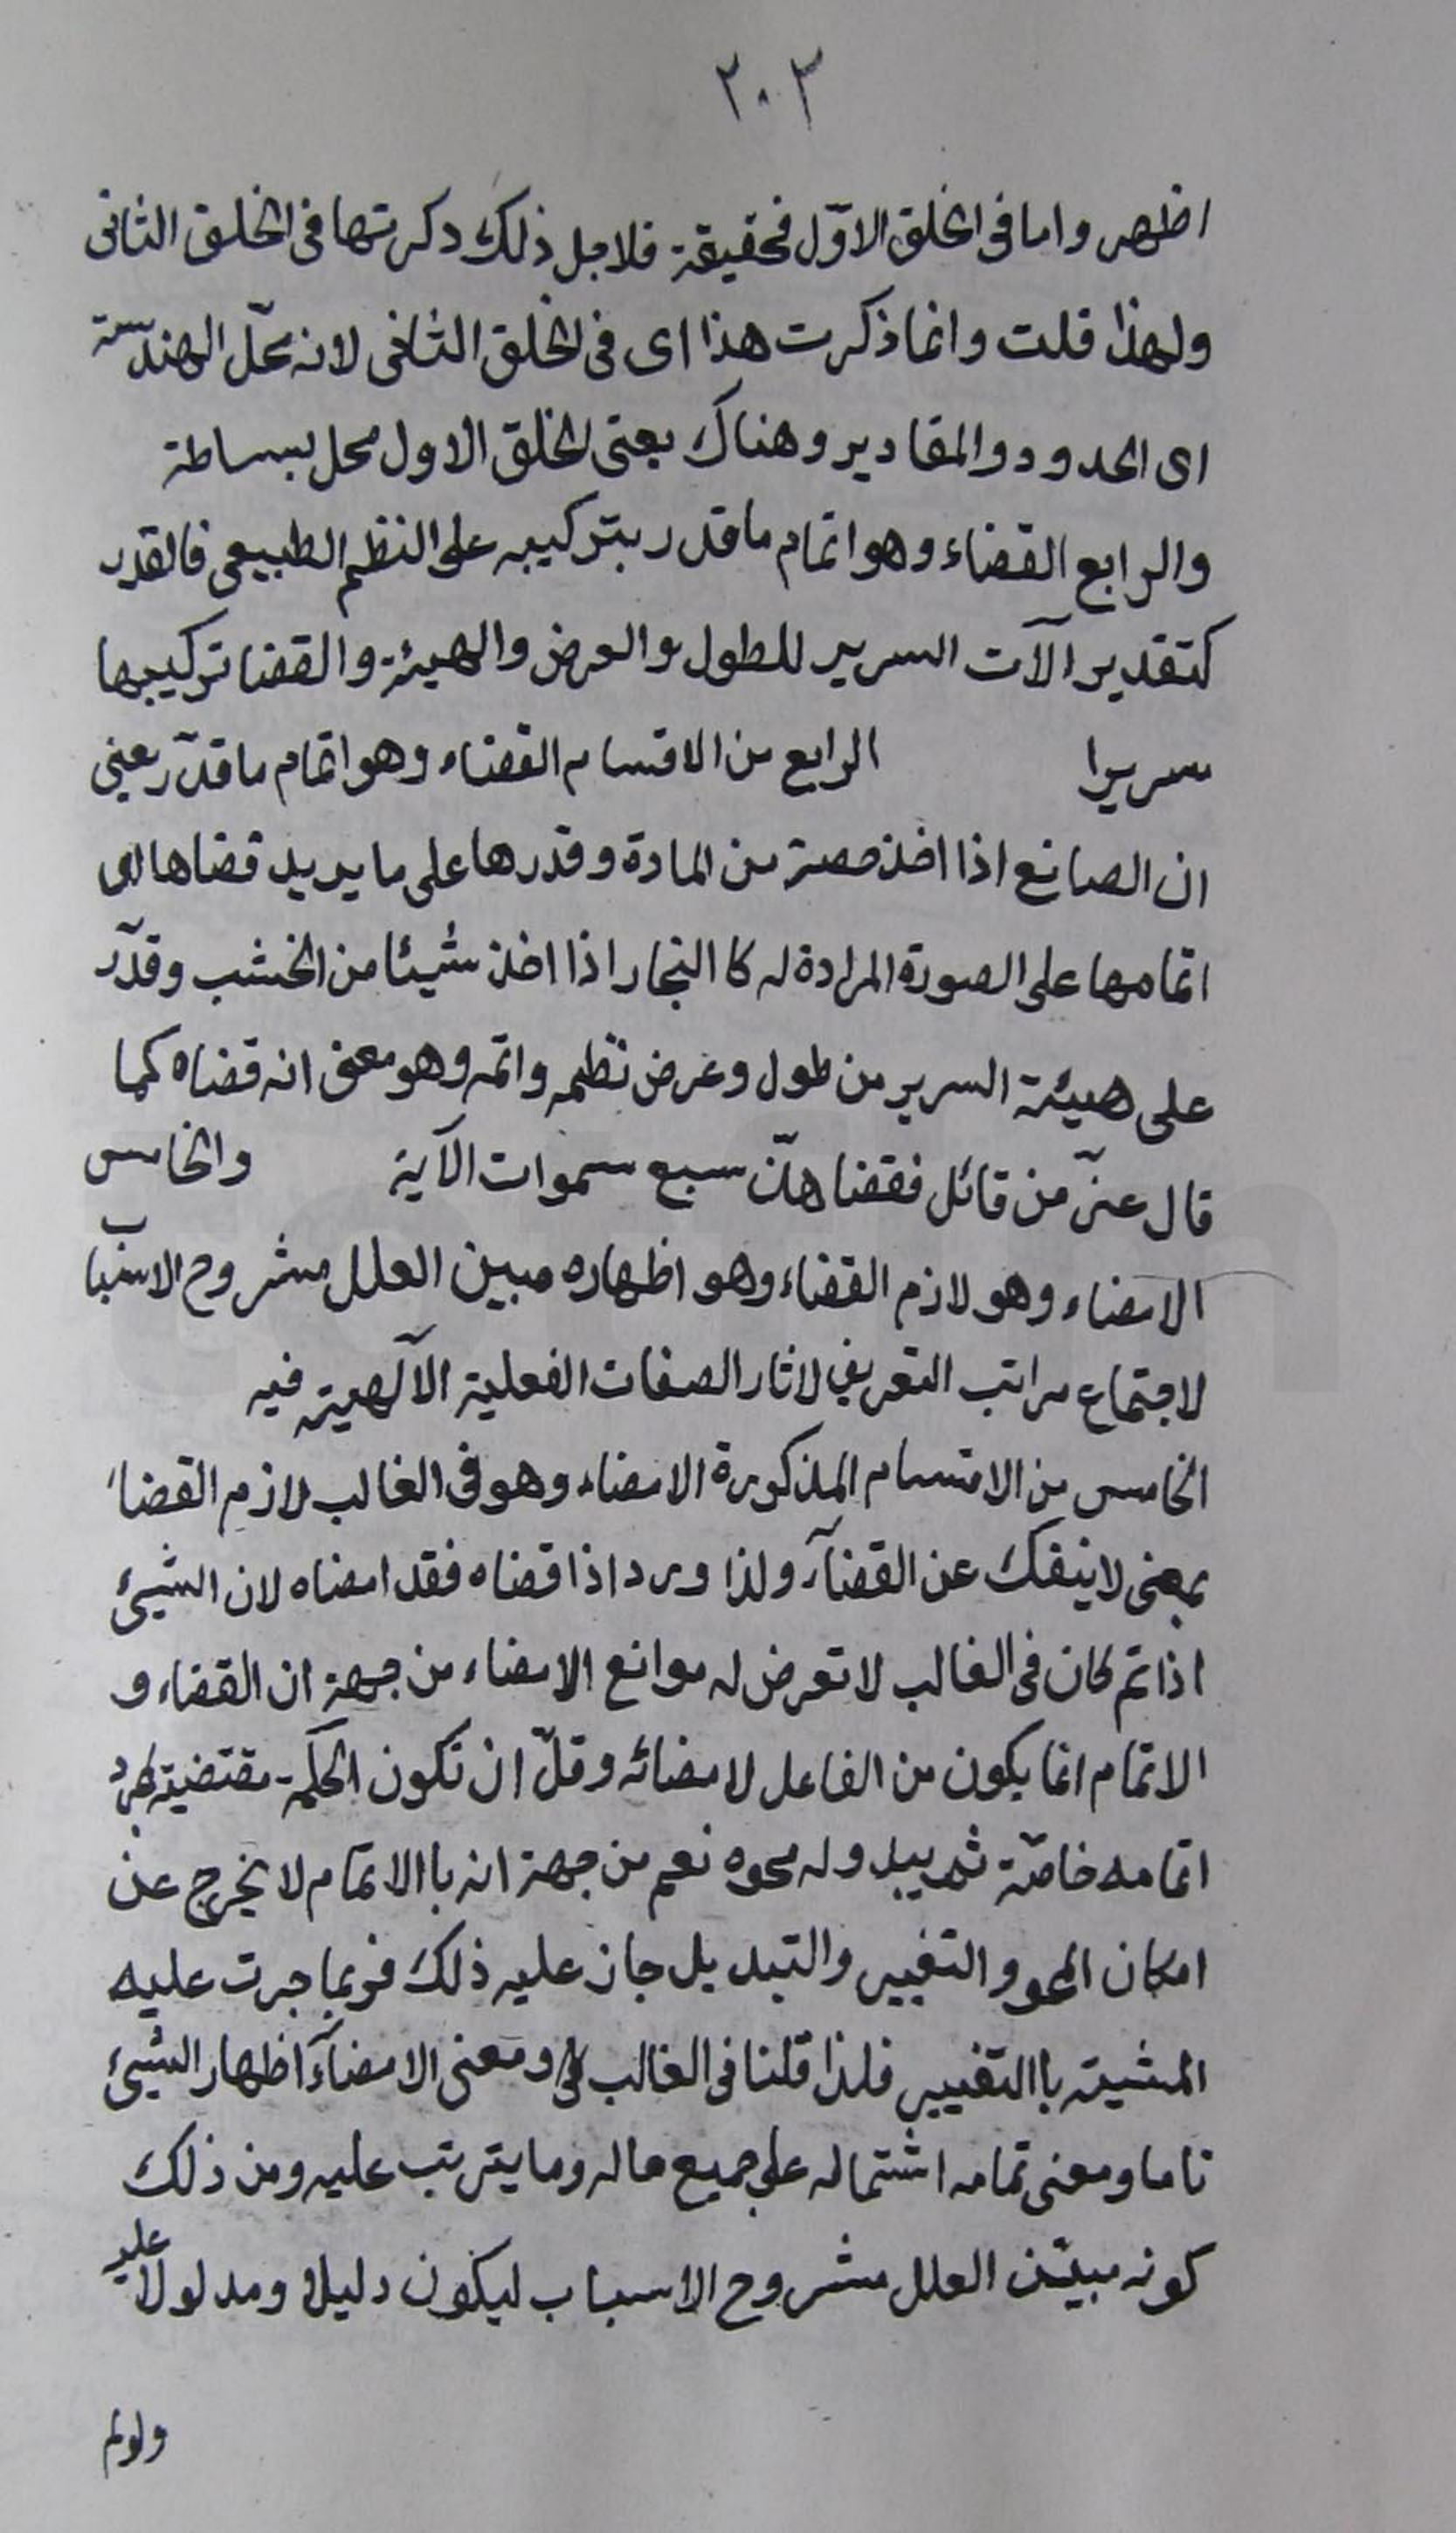 ٢٠٣
اظهر واما فى الخلق الاوّل فحقيقة فلاجل ذلك ذكرتها فى الخلق الثانى
ولهذا قلت وانما ذكرت هذا اى فى الخلق الثانى لانه محلّ الهندسة
اى الحدود والمقادير وهناك يعنى الخلق الاول محل بساطة
والرابع القضاء وهو اتمام ما قدر بتركيبه على النظم الطبيعى فالقدر
كتقدير الآت السرير للطول والعرض والهيئة والقضا تركيبها
سريرا الرابع من الاقسام القضاء وهو اتمام ما قدّر يعنى
ان الصانع اذا اخذ حصة من المادة وقدرها على ما يريد قضاها اى
اتمامها على الصورة المرادة له كا النجار اذا اخذ شيئا من الخشب وقدّر
على هيئة السرير من طول وعرض نظمه واتمه وهو معنى انه قضاه كما
قال عزّ من قائل فقضاهنّ سبع سموات الآية والخامس
الامضاء وهو لازم القضاء وهو اظهاره مبين العلل مشروح الاسباب
لاجتماع مراتب التعريف لاثار الصفات الفعلية الآلهية فيه
الخامس من الاقسام المذكورة الامضاء وهو فى الغالب لازم القضاء
بمعنى لا ينفك عن القضآء ولذا ورد اذا قضاه فقد امضاه لان الشيئ
اذا تم كان فى الغالب لا تعرض له موانع الامضاء من جهة ان القضاء و
الاتمام انما يكون من الفاعل لامضائه وقلّ ان تكون الحكمة مقتضية لمجرد
اتمامه خاصّة ثم يبدو له محوه نعم من جهة انه باالاتمام لا يخرج عن
امكان المحو والتغيير والتبديل جاز عليه ذلك فربما جرت عليه
المشية باالتغيير فلذا قلنا فى الغالب ومعنى الامضآء اظهار الشيئ
تاما ومعنى تمامه اشتماله على جميع ماله وما يترتب عليه ومن ذلك
كونه مبيّن العلل مشروح الاسباب ليكون دليلا ومدلولا عليه
ولولم